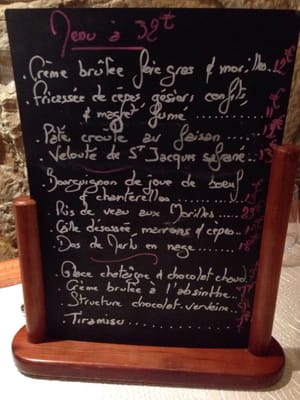 Menu à 32€
. Crème brûlée foie gras & morilles..
. Fricassée de cèpes, gésiers confits,
& magret fumé
. Pâté croûte au faisan
. Velouté de St Jacques safrané..
. Bourguignon de joue de boeuf
& chanterelles
. Ris de veau aux Morilles
. Caille désossée marrons & cèpes
. Dos de Merlu en nage
. Glace chataigne & chocolat chaud.
. Crème brûlée à l'absinthe..
. Structure chocolat-verveine..
. Tiramisu